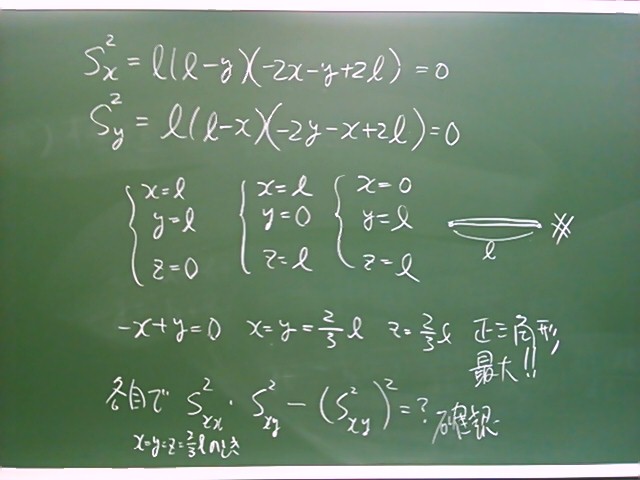 S²x = l(l-y)(-2x-y+2l) = 0
S²y = l(l-x)(-2y-x+2l) = 0
{ x=l y=l z=0 { x=l y=0 z=l { x=0 y=l z=l l ※
-x+y=0 x=y=2/3 l z=2/3 l 正三角形
最大!!
各自で S²xx · S²xy - (S²xy)² = ? 確認
x=y=z=2/3 l のとき